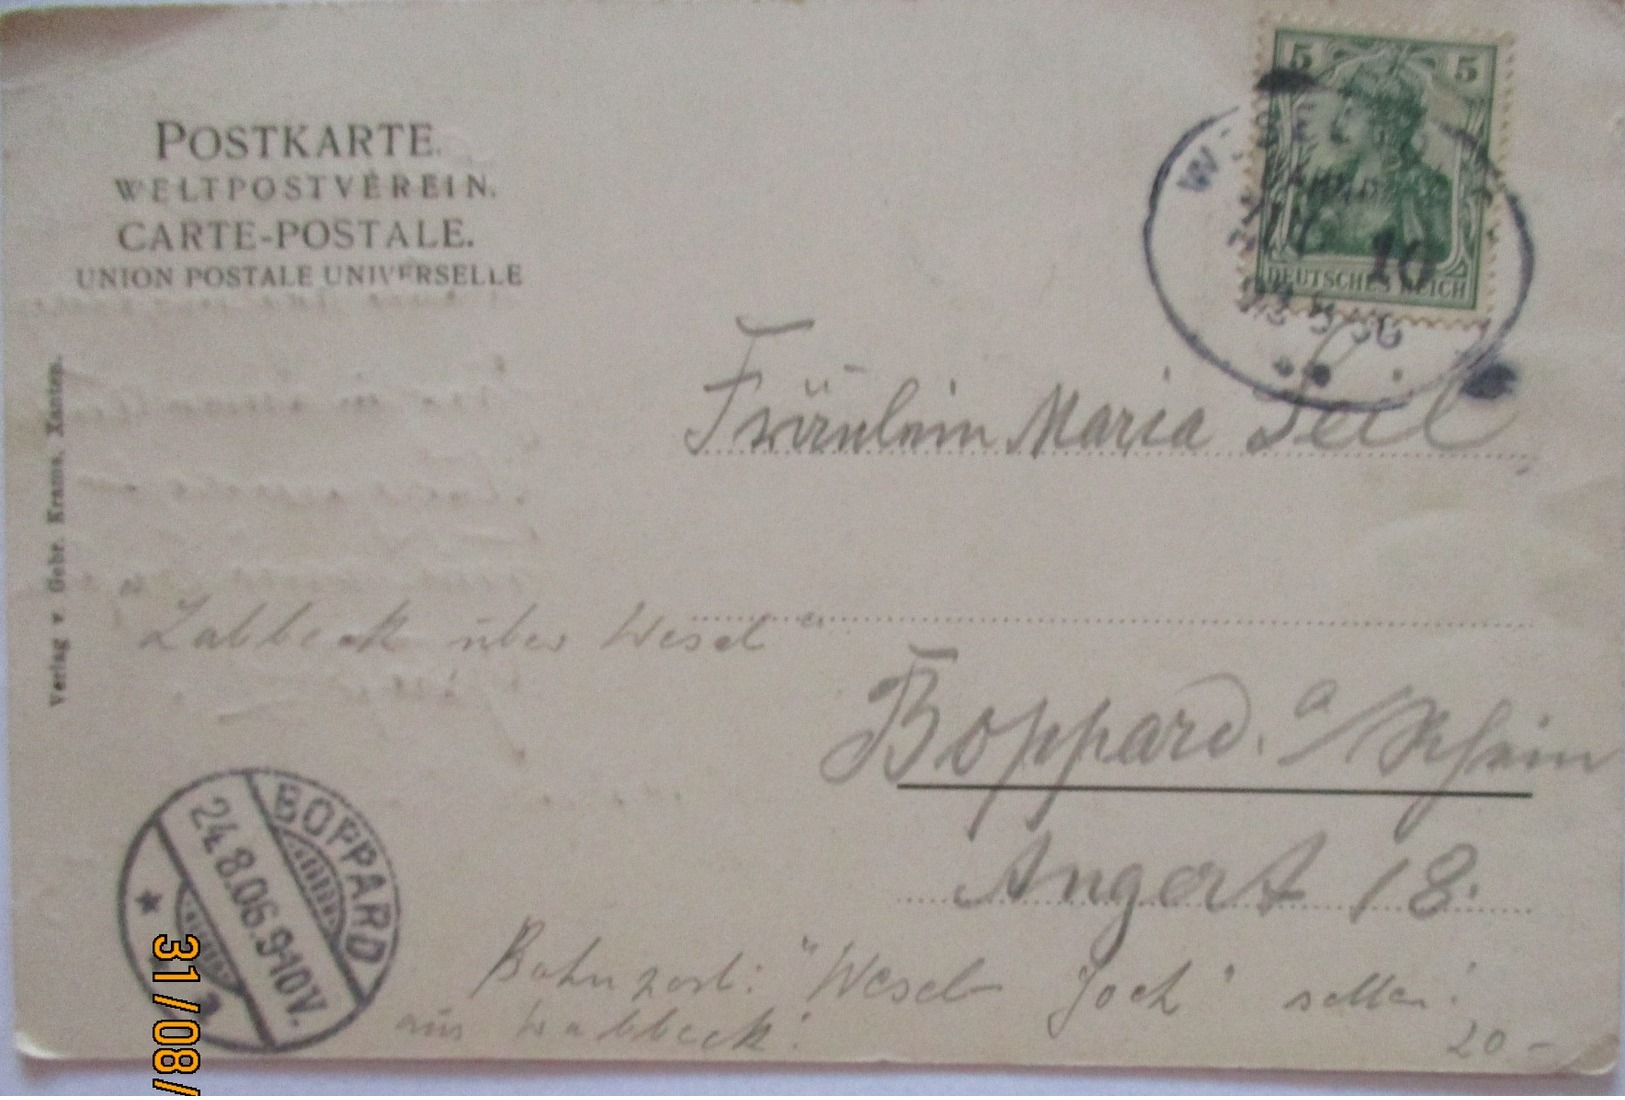 POSTKARTE.
WELTPOSTVEREIN.
CARTE-POSTALE.
UNION POSTALE UNIVERSELLE
5 5
DEUTSCHES REICH
10
Verlag v. Gebr. Krams, Xanten.
Fräulein Maria Seil
Labbeck über Wesel
Boppard. a/Rhein
Angert 18.
BOPPARD
24.8.06.9-10V.
Bahnpost: "Wesel- Goch" selten!
aus Labbeck!
20 -
31/08/